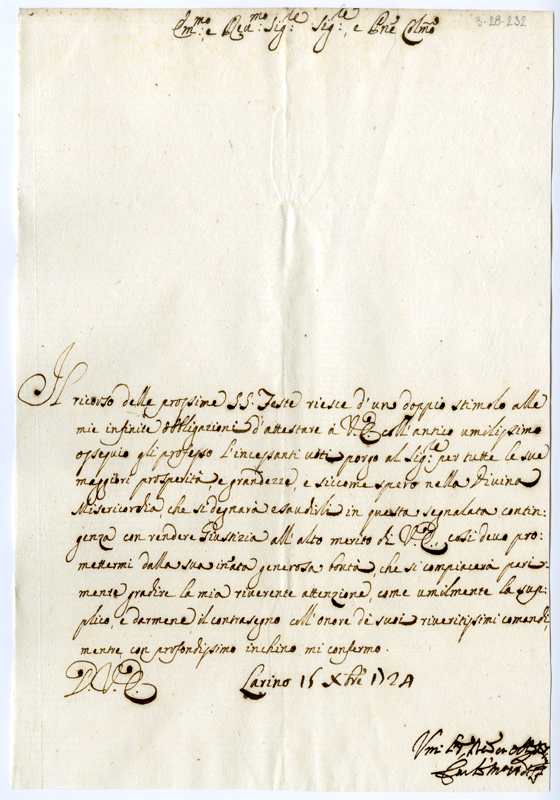 3-28-232
Em.mo e Rev.mo Sig.re Sig.re, e Pñe Colmo
Il ricorso delle prossime SS. Feste riesce d'un doppio stimolo alle
mie infinite obbligazioni d'attestare à V.E. coll'antico umilissimo
ossequio gli professo l'incessanti voti porgo al Sig.re per tutte le sue
maggiori prosperità e grandezze, e siccome spero nella Divina
Misericordia, che si degnarà esaudirli in questa segnalata contin-
genza con rendere Giustizia all'alto merito di V.E., così devo pro-
mettermi dalla sua innata generosa bontà, che si compiacerà pari-
mente gradire la mia riverente attenzione, come umilmente la sup-
plico, e darmene il contrasegno coll'onore de suoi riveritissimi comandi,
mentre con profondissimo inchino mi confermo.
D.V.E. Larino 15 Xbre 1724